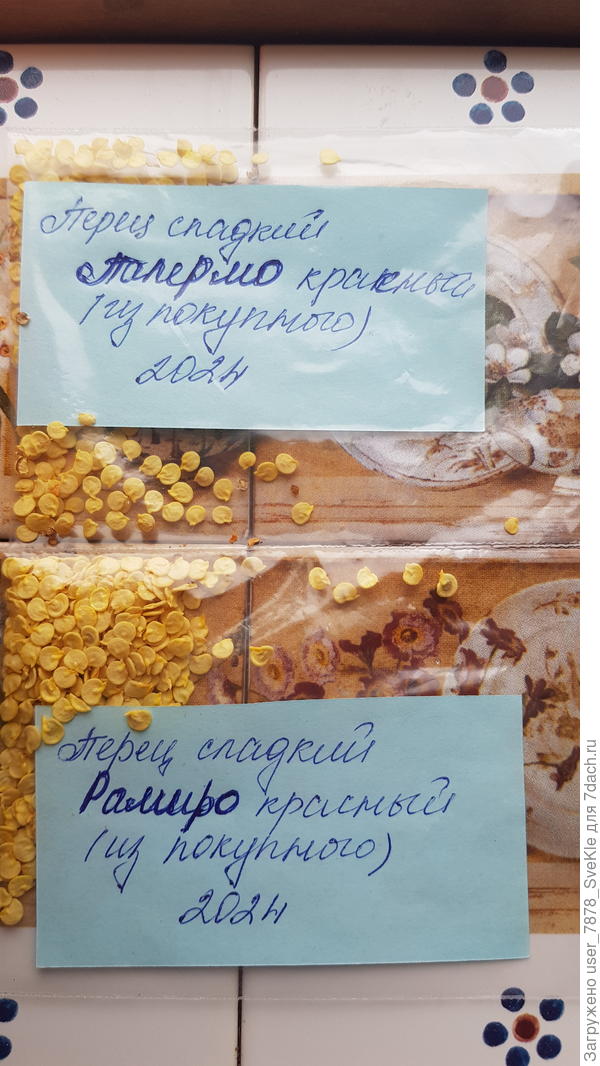 Перец сладкий
Палермо красный
(из покупного)
2024
Перец сладкий
Рамиро красный
(из покупного)
2024
Загружено user_7878_SveKle для 7dach.ru